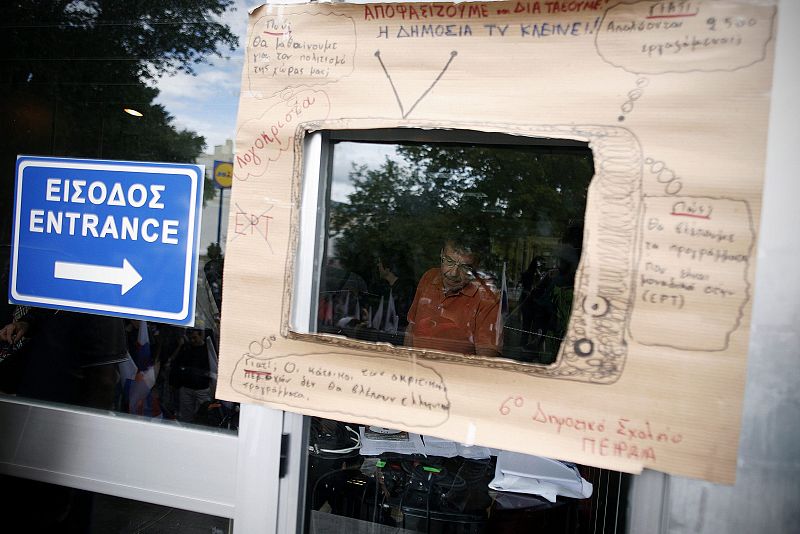 ΑΠΟΦΑΣΙΖΟΥΜΕ και ΔΙΑΤΑΣΟΥΜΕ!
Η ΔΗΜΟΣΙΑ TV ΚΛΕΙΝΕΙ!
Πού;
Θα μαθαίνουμε
για τον πολιτισμό
της χώρας μας;
ΓΙΑΤΙ;
Απολύονται 2.500
εργαζόμενοι;
Λογοκρισία
ΕΡΤ
Πού;
Θα βλέπουμε
τα προγράμματα
που είναι
μοναδικά στην
(ΕΡΤ)
ΕΙΣΟΔΟΣ
ENTRANCE
Γιατί; Οι κάτοικοι των ακριτικών
περιοχών δεν θα βλέπουν ελληνικά
προγράμματα.
6ο Δημοτικό Σχολείο
ΠΕΙΡΑΙΑ